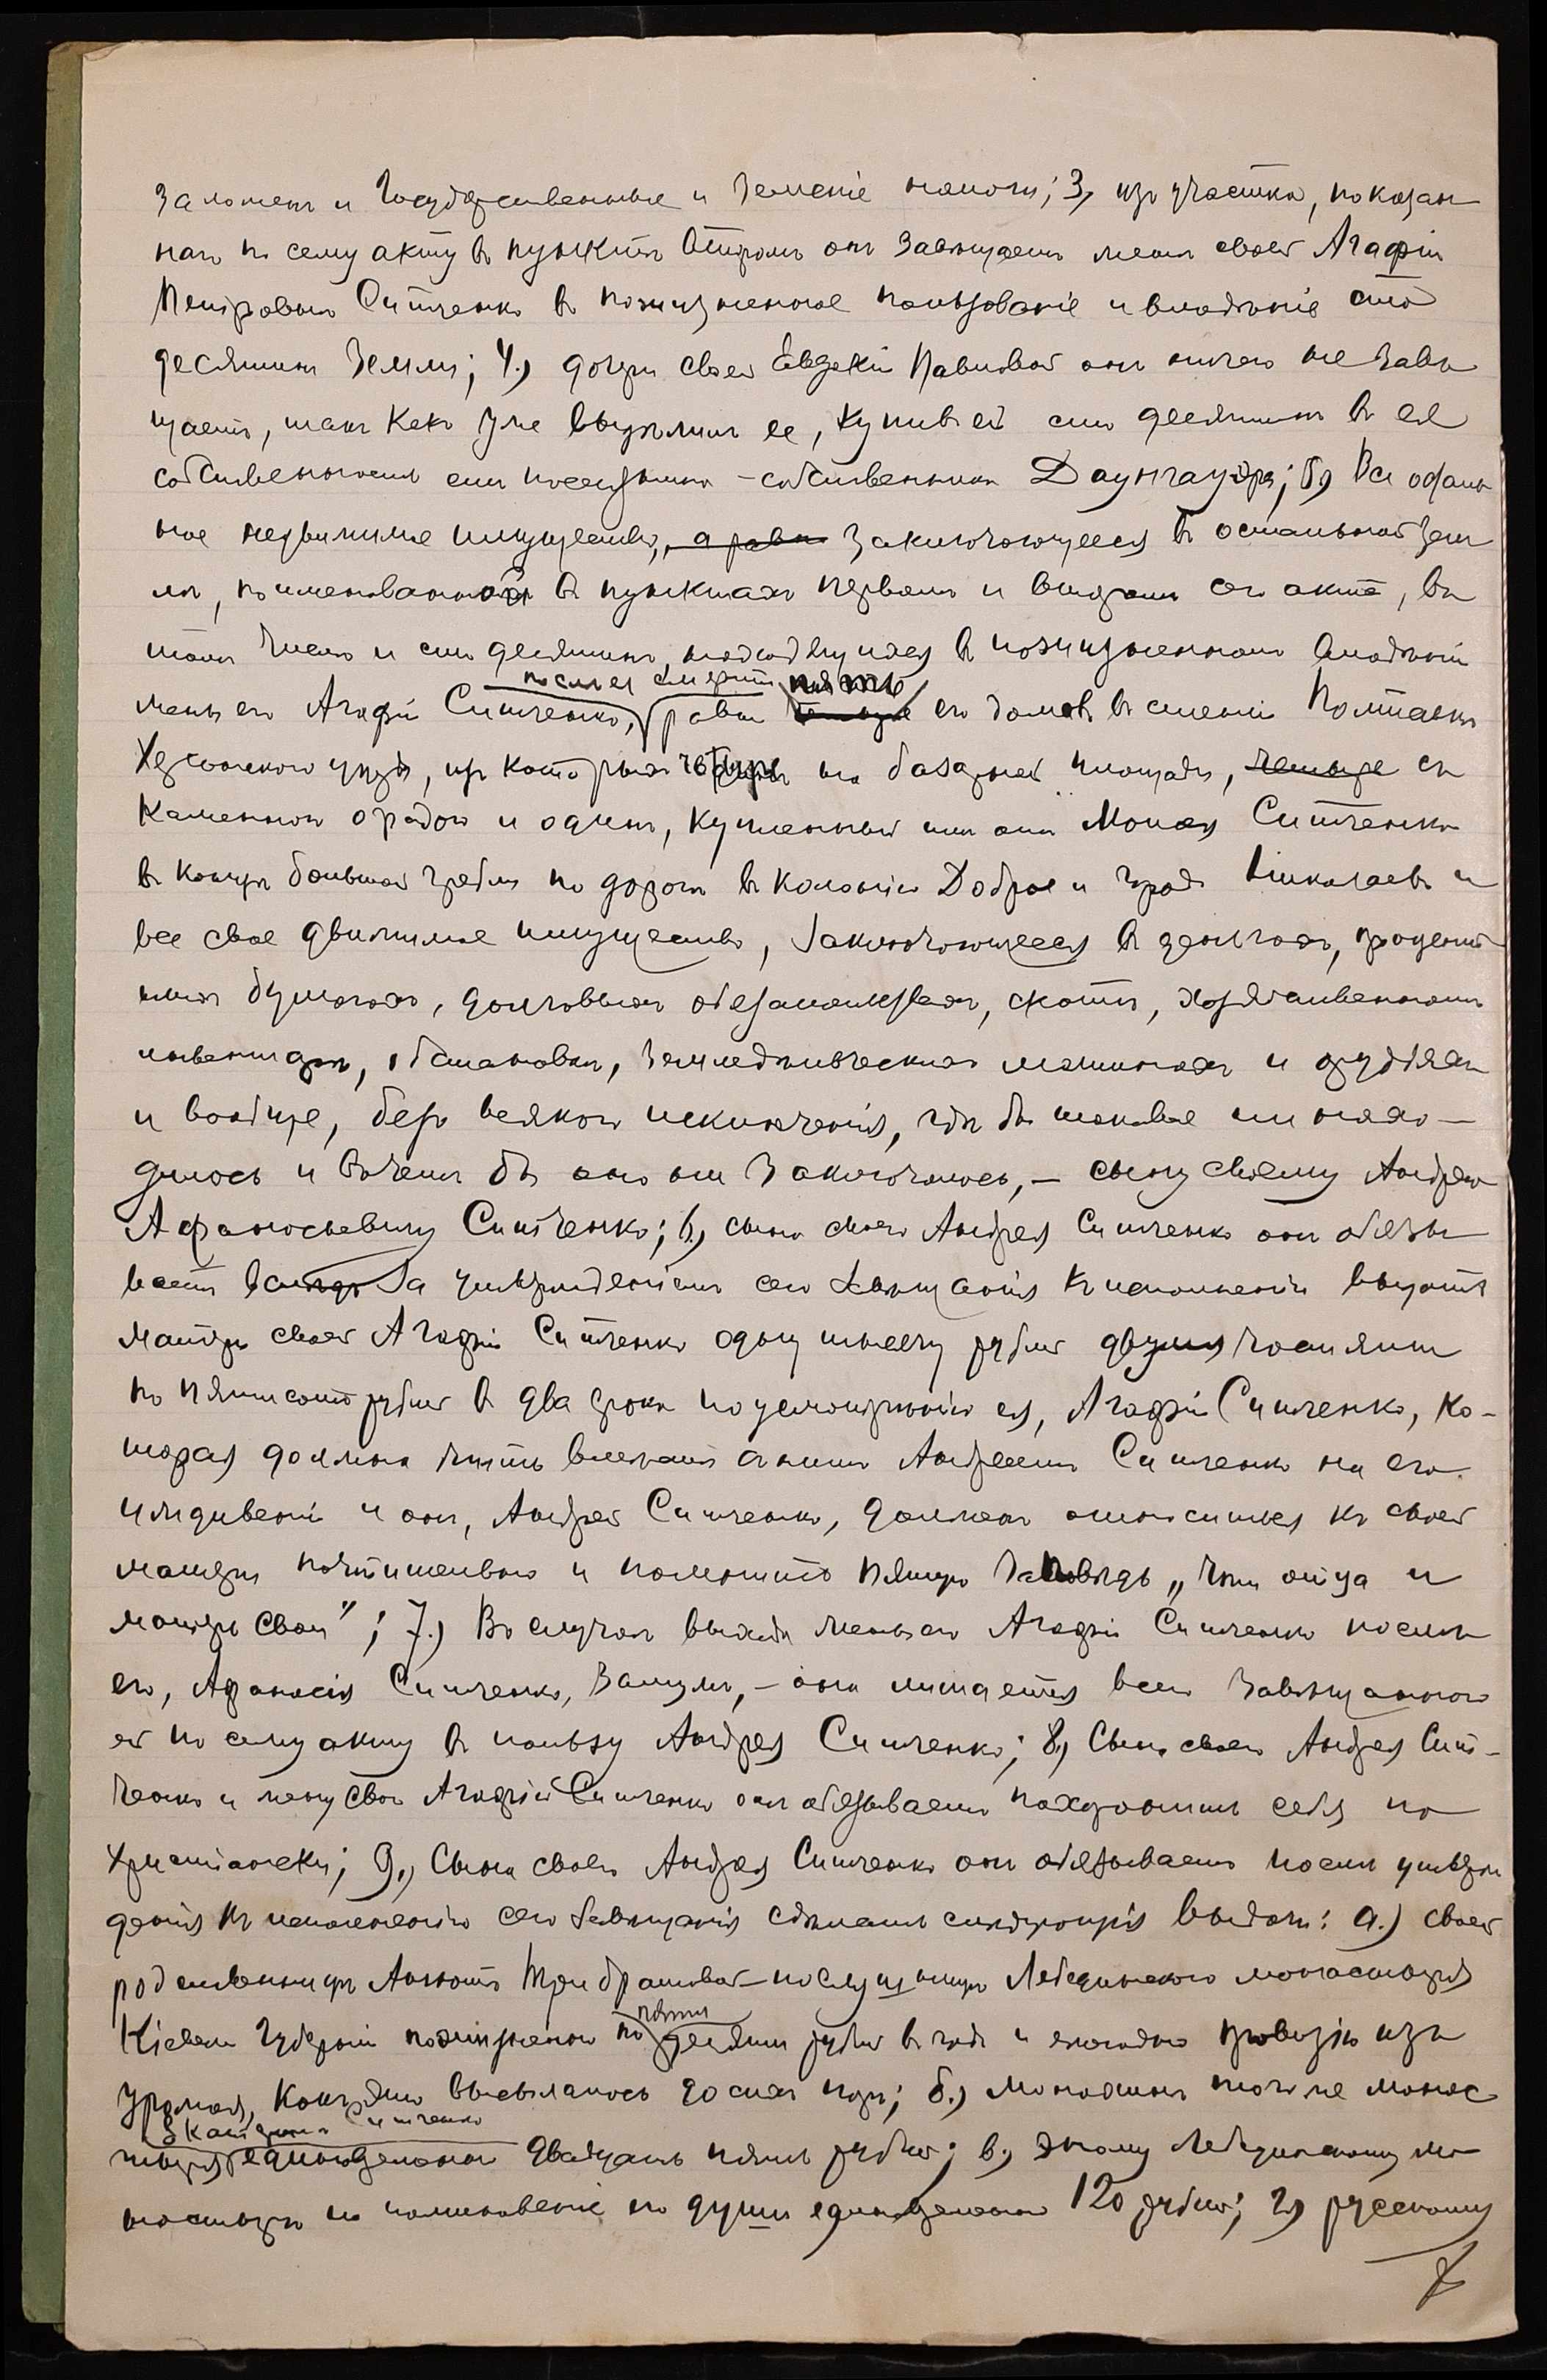 заложенъ и Государственные и Земскіе налоги; 3, изъ участка, показан
наго по сему акту въ пунктѣ второмъ онъ завѣщаетъ женѣ своей Агафіи
Петровнѣ Ситченко въ пожизненное пользованіе и владѣніе сто
десятинъ земли; 4,) дочери своей Евдокіи Павловой онъ ничего не завѣ
щаетъ, такъ какъ уже выдѣлилъ ее, купивъ ей сто десятинъ въ ея
собственность отъ поселянина-собственника Даунгауэра; 5) Все осталь
ное недвижимое имущество, а равно заключающееся въ остальной зем
лѣ, поименованной въ пунктахъ первомъ и второмъ сего акта, въ
томъ числѣ и сто десятинъ, находящихся въ пожизненномъ владѣніи
жены его Агафіи Ситченко, после ея смерти, равно пять его домовъ въ селеніи Полтавка
Херсонскаго уѣзда, изъ которыхъ четыре на базарной площади, четыре съ
каменной оградою и одинъ, купленный имъ отъ Моисея Ситченко
въ концѣ большой гребли по дорогѣ въ колонію Доброе и городъ Николаевъ и
все свое движимое имущество, заключающееся въ деньгахъ, процент
ныхъ бумагахъ, долговыхъ обязательствахъ, скотѣ, хозяйственномъ
инвентарѣ, обстановкѣ, земледѣльческихъ машинахъ и орудіяхъ
и вообще, безъ всякаго исключенія, гдѣ бы таковое ни нахо-
дилось и въ чемъ бы оно ни заключалось, - сыну своему Андрею
Афанасьевичу Ситченко; 6,) сына своего Андрея Ситченко онъ обязы
ваетъ вслѣдъ за утвержденіемъ сего завѣщанія къ исполненію выдать
матери своей Агафіи Ситченко одну тысячу рублей двумя частями
по пятисотъ рублей въ два срока по усмотрѣнію ея, Агафіи Ситченко, ко-
торая должна жить вмѣстѣ съ нимъ Андреемъ Ситченко на его
иждивеніи и онъ, Андрей Ситченко, долженъ относиться къ своей
матери почтительно и помнить пятую заповѣдь „чти отца и
матерь свою"; 7,) Въ случаѣ выхода жены его Агафіи Ситченко послѣ
его, Афанасія Ситченко, замужъ, - она лишается всего завѣщаннаго
ей по сему акту въ пользу Андрея Ситченко; 8,) Сына своего Андрея Сит-
ченко и жену свою Агафію Ситченко онъ обязываетъ похоронить себя по
христіански; 9,) Сына своего Андрея Ситченко онъ обязываетъ послѣ утверж
денія къ исполненію сего завѣщанія сдѣлать слѣдующія выдачи: а.) своей
родственницѣ Аннѣ послушницѣ Лебединскаго монастыря
Кіевской губерніи пожизненно по пяти десяти рублей въ годъ и ежегодно провизію изъ
урожая, какъ это высылалось до сихъ поръ; б.) монахинѣ того же монас
тыря Екатеринѣ Ситченко единовременно двадцать пять рублей; в,) этому Лебединскому мо
настырю на поминовеніе его души единовременно 120 рублей; г,) русскому